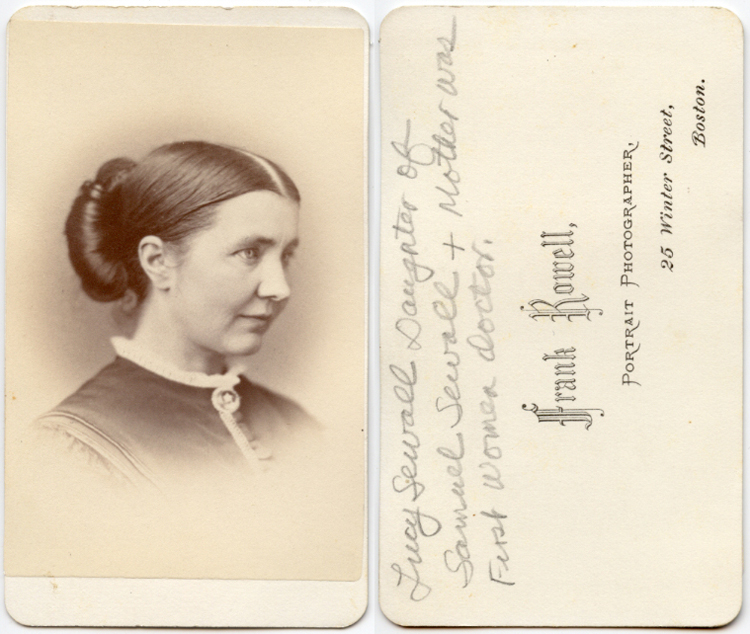 Lucy Sewall Daughter of
Samuel Sewall + Mother was
First women doctor.
Frank Rowell,
PORTRAIT PHOTOGRAPHER,
25 Winter Street,
Boston.